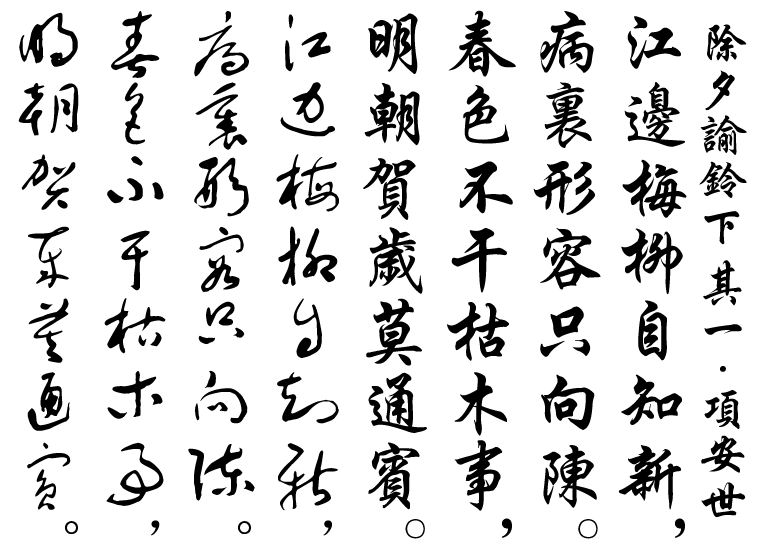 除夕諭鈴下 其一·項安世
江邊梅柳自知新，
病裏形容只向陳。
春色不干枯木事，
明朝賀歲莫通賓。
江边梅柳自知新，
病裏形容只向陈。
春色不干枯木事，
明朝贺岁莫通宾。